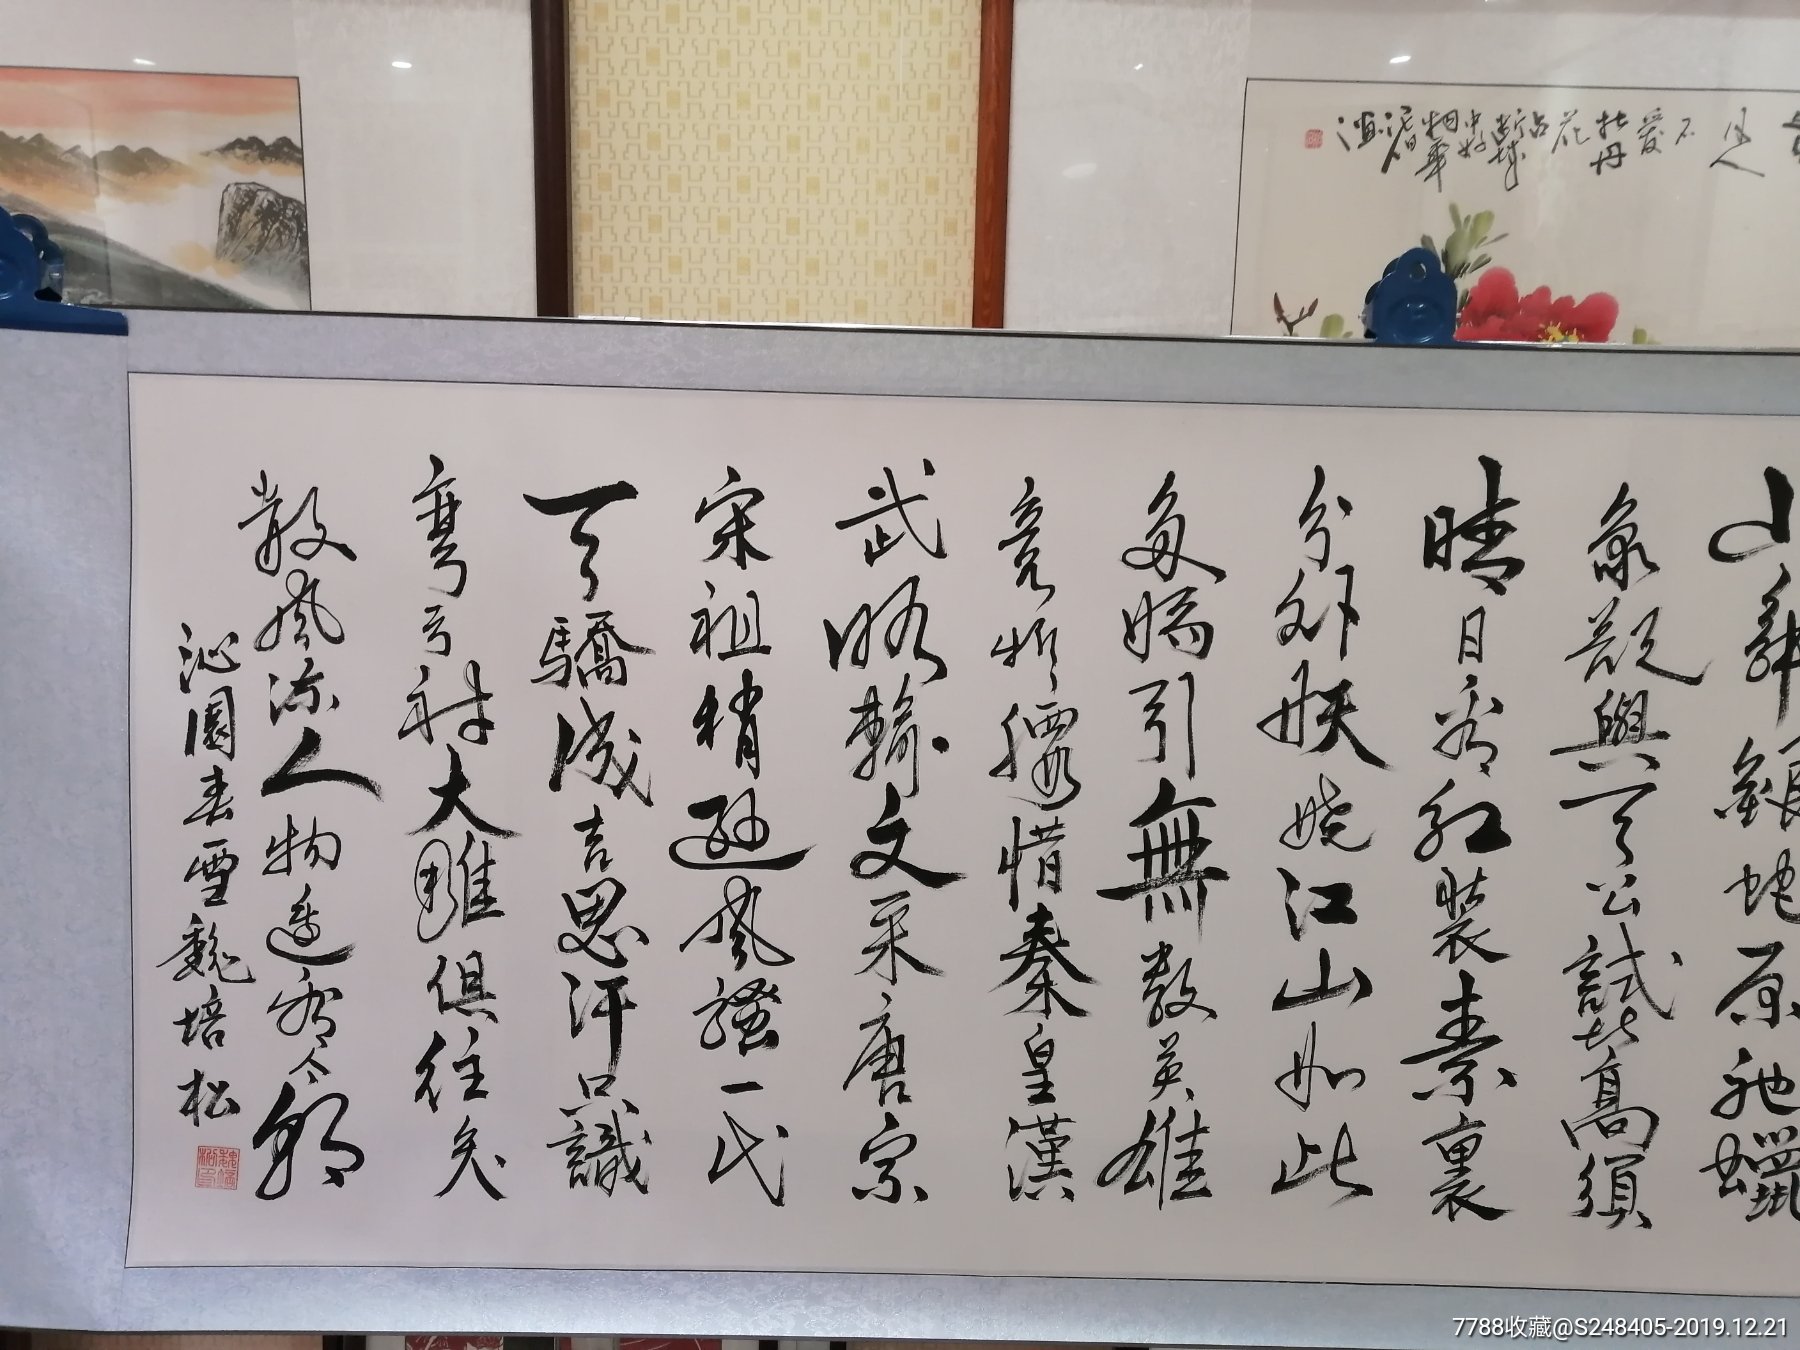 山舞銀蛇原馳蠟
象欲與天公試比高須
晴日看紅裝素裏
分外妖嬈江山如此
多嬌引無數英雄
竞折腰惜秦皇漢
武略輸文采唐宗
宋祖稍遜風騷一代
天驕成吉思汗只識
彎弓射大雕俱往矣
數風流人物還看今朝
沁園春雪魏培松
人
不
愛
牡丹
花
占
断城
中好
7788收藏@S248405-2019.12.21